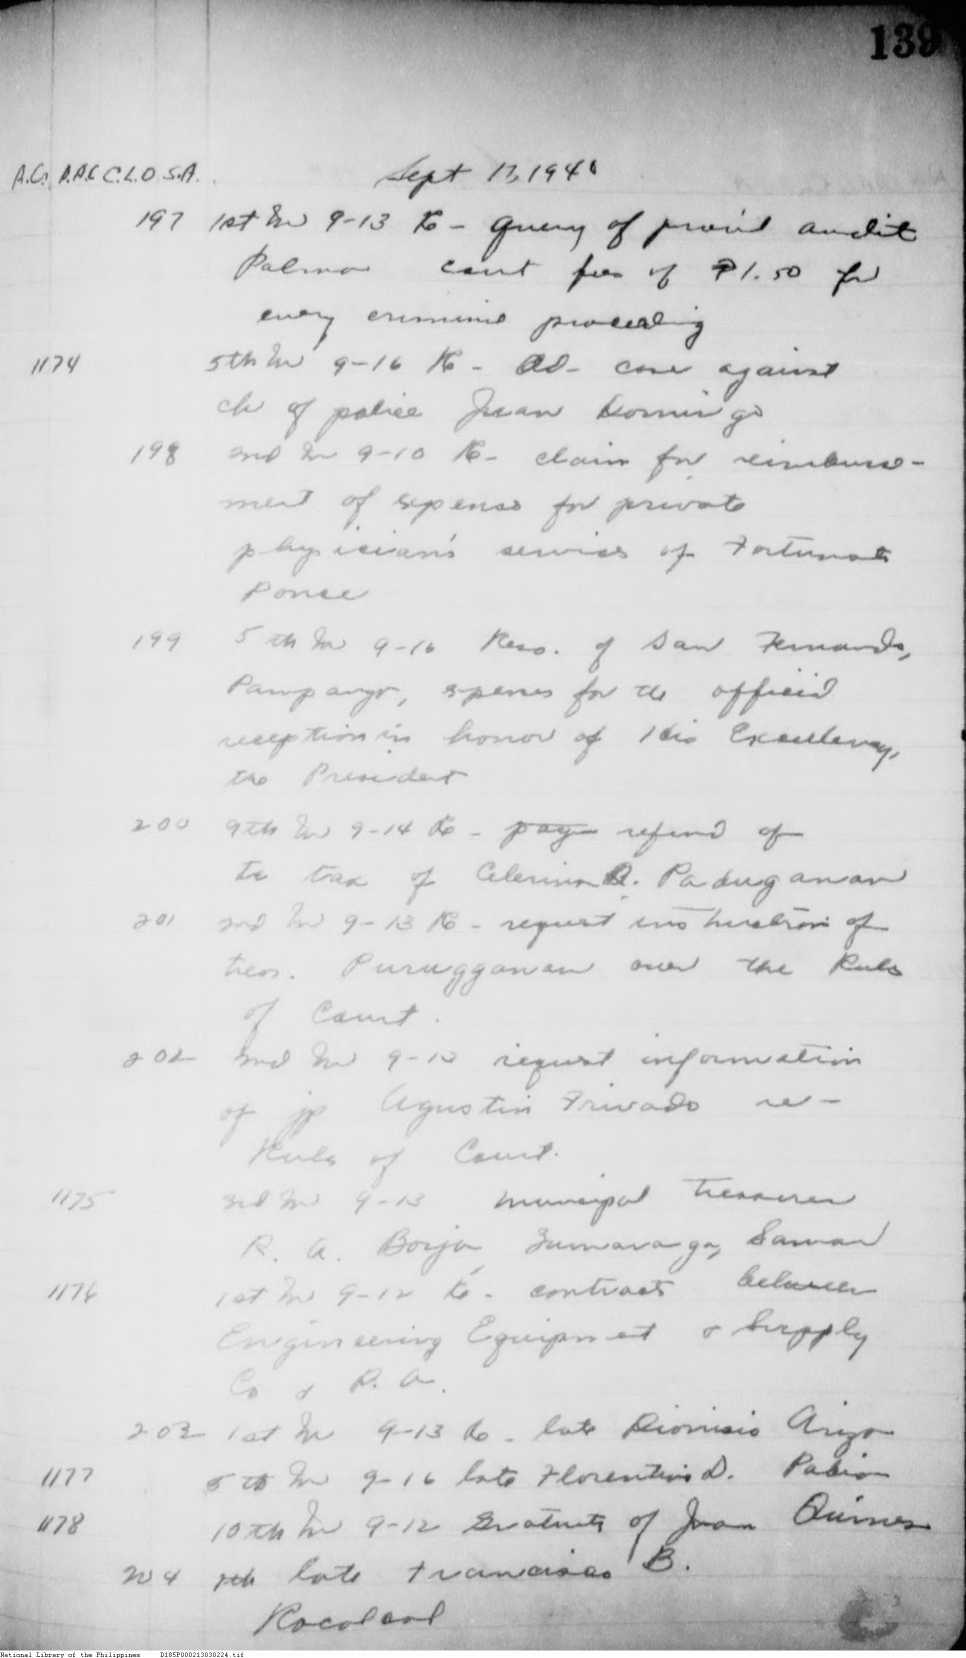 139
A.G. A.A.C C.L.O S.A. Sept 17, 1940
197 1st In 9-13 Re - query of prov'l audit
Palma court fees of ₱1.50 for
every criminal proceeding
1174 5th In 9-16 Re - Ad- case against
ch of police Juan Domingo
198 2nd In 9-10 Re - claim for reimburse-
ment of expenses for private
physician's services of Fortunato
Ponce
199 5th In 9-16 Reso. of San Fernando,
Pampanga, expenses for the official
reception in honor of His Excellency,
the President
200 9th In 9-14 Re - refund of
tax of Celerina Paduganan
201 2nd In 9-13 Re - request instruction of
treas. Purugganan over the Rules
of Court.
202 2nd In 9-12 request information
of jp Agustin Frivado re-
Rules of Court.
1175 3rd In 9-13 municipal treasurer
R. A. Borja, Zumarraga, Samar
1176 1st In 9-12 Re - contract between
Engineering Equipment & Supply
Co & R. A.
203 1st In 9-13 Re - late Dionisio
1177 5th In 9-16 late Florentino D.
1178 10th In 9-12 Gratuity of Juan
204 7th late Francisco B.
National Library of the Philippines D185P000213030224.tif